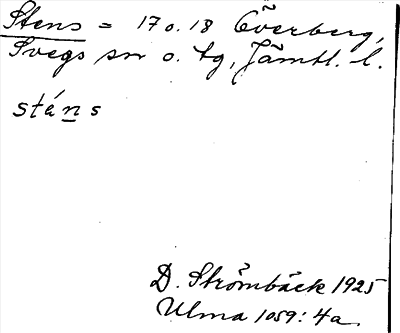 Stens = 17 o. 18 Överberg,
Svegs sn o. tg, Jämtl. l.
sténs
D. Strömbäck 1925
Ulma 1059: 4a